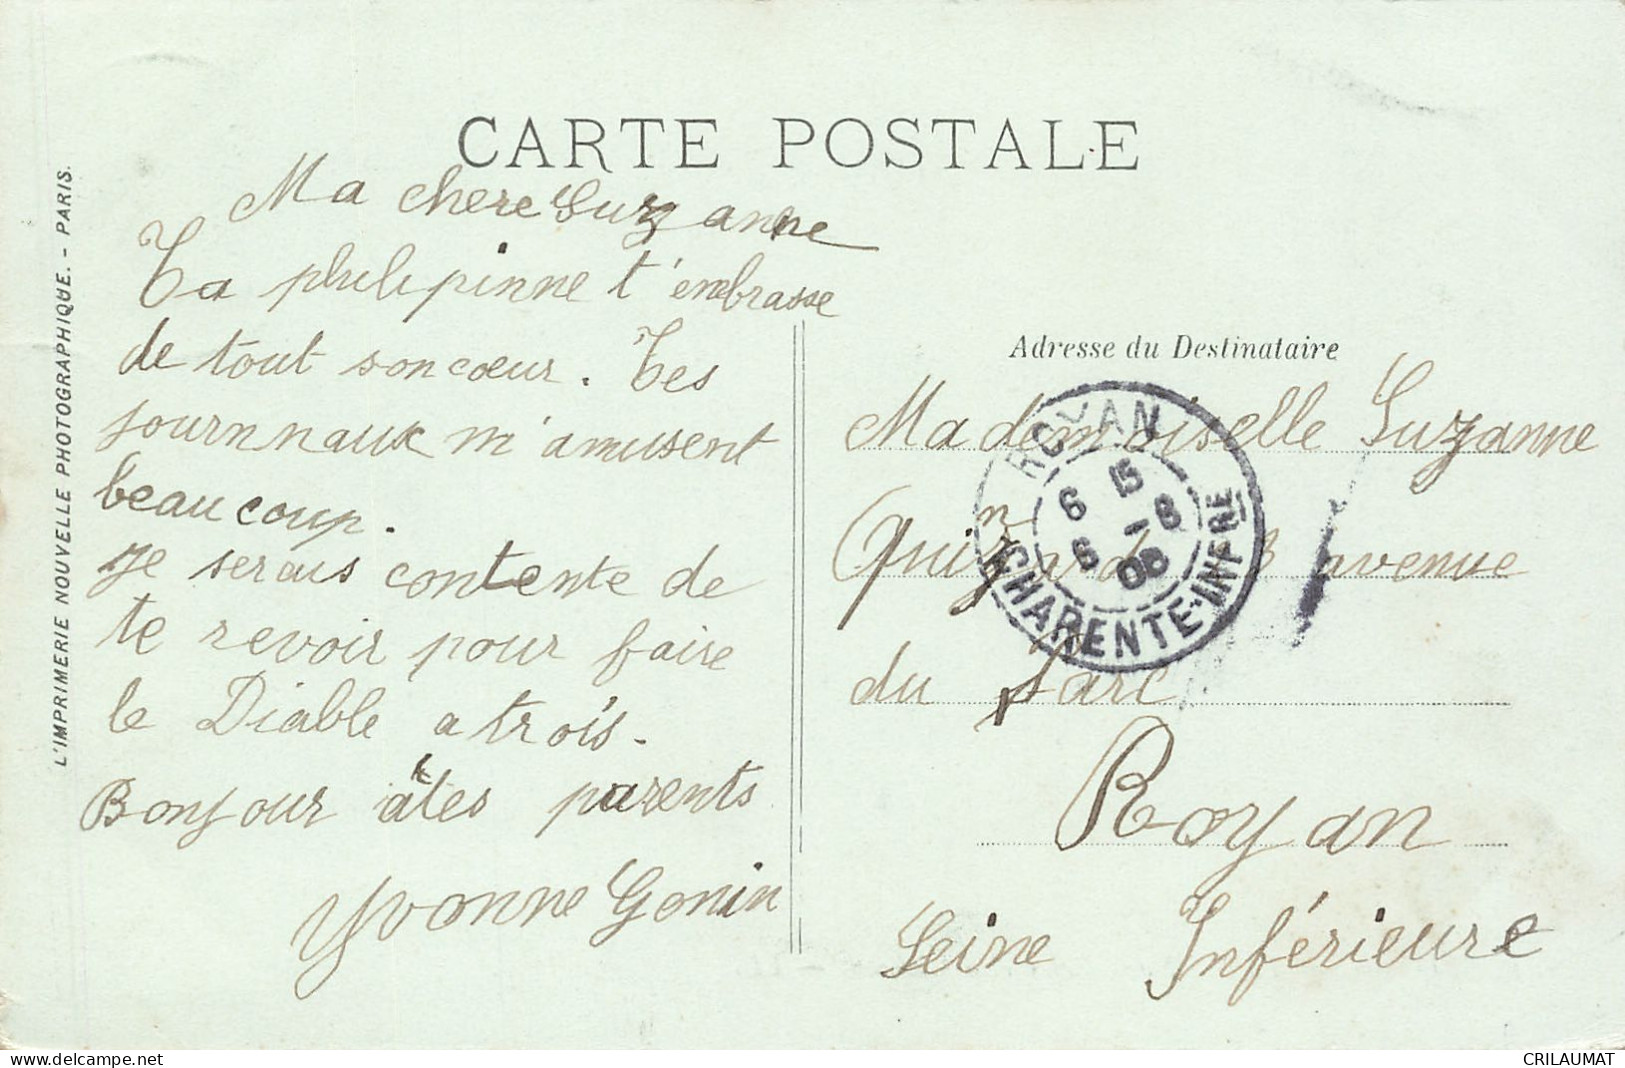 CARTE POSTALE
L'IMPRIMERIE NOUVELLE PHOTOGRAPHIQUE. - PARIS.
Ma chere Suzanne
Ta philipinne t'embrasse
de tout son coeur. Tes
journnaux m'amusent
beaucoup.
Je serais contente de
te revoir pour faire
le Diable a trois.
Bonjour à tes parents
Yvonne Gonin
Adresse du Destinataire
Mademoiselle Suzanne
avenue
du Parc
Royan
Seine Inférieure
ROYAN
6 15
6 -8
08
CHARENTE-INFRE
CRILAUMAT